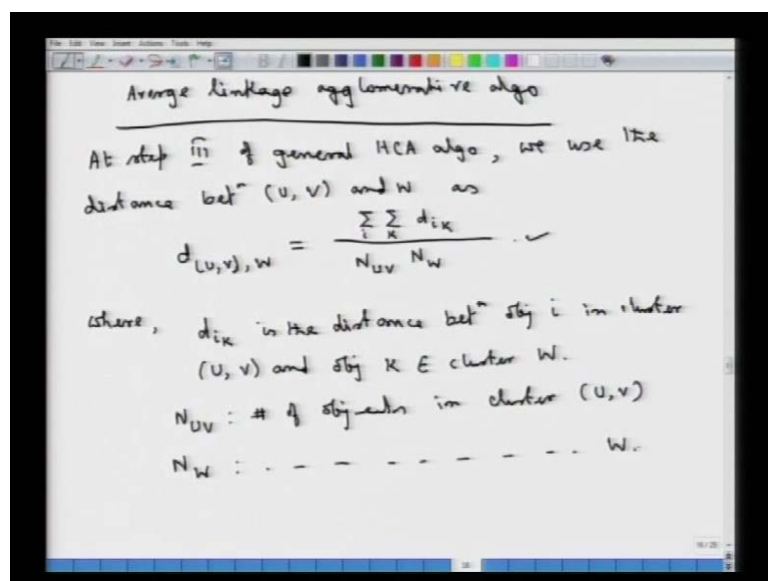 File Edit View Insert Actions Tools Help
Average linkage agglomerative algo
At step iii of general HCA algo, we use the
distance betⁿ (U, V) and W as
d_{(U,V), W} = \frac{\sum_i \sum_k d_{ik}}{N_{UV} N_W} . ✓
where, d_{ik} is the distance betⁿ obj i in cluster
(U, V) and obj k ∈ cluster W.
N_{UV} : # of objects in cluster (U, V)
N_W : . - - - - - - - . . W.